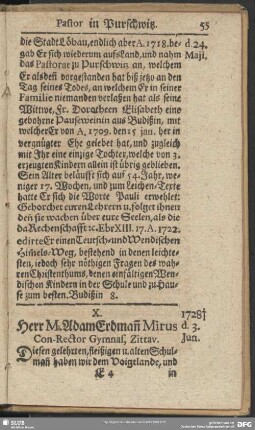 Pastor in Purschwitz. 55
die Stadt Löbau, endlich aber A. 1718. be-
gab Er sich wiederum aufs Land, und nahm
d. 24.
Maji,
das Pastorat zu Purschwitz an, welchem
Er als deñ vorgestanden hat biß jetzo an den
Tag seines Todes, an welchem Er in seiner
Familie niemanden verlaßen hat als seine
Witwe, Fr. Dorotheen Elisabeth eine
gebohrne Pauseweinin aus Budißin, mit
welcher Er von A, 1709. den 15 jan. her in
vergnügter Ehe gelebet hat, und zugleich
mit Ihr eine einzige Tochter, welche von 3.
erzeugten Kindern allein ist übrig geblieben.
Sein Alter beläufft sich auf 54. Jahr, we-
niger 17. Wochen, und zum Leichen-Texte
hatte Er sich die Worte Pauli erwehlet:
Gehorchet euren Lehrern u. folget ihnen
deñ sie wachen über eure Seelen, als die
da Rechenschafft ꝛc. Ebr XIII. 17. A. 1722.
edirte Er einen Teutsch- und Wendischen
Him̃els-Weg, bestehend in denen leichte-
sten, jedoch sehr nöthigen Fragen des wah-
ren Christenthums, denen einfältigen Wen-
dischen Kindern in der Schule und zu Hau-
se zum besten. Budißin 8.
X.
Herr M. Adam Erdmañ Mirus
Con-Rector Gymnas. Zittav.
1728†
d. 3.
Jun.
Diesen gelehrten, fleißigen u. alten Schul-
mañ haben wir dem Voigtlande, und
E 4 in
SLUB
DFG